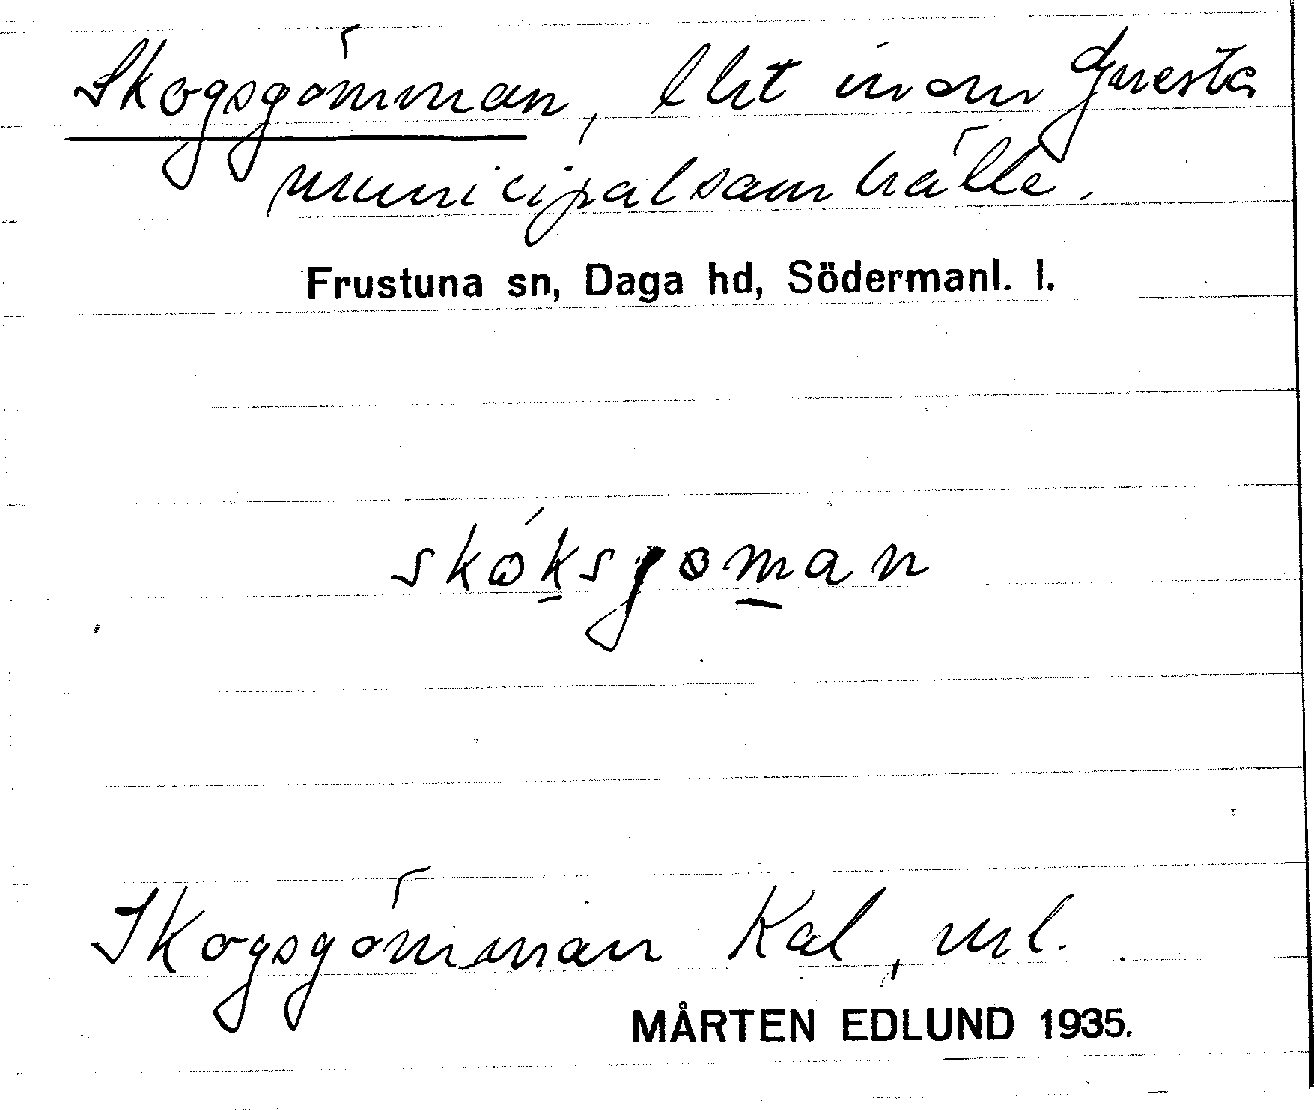 Skogsgömman, lht inom Gnesta
municipalsamhälle.
Frustuna sn, Daga hd, Södermanl. l.
skóksgöman
Skogsgömman Kal, ml.
MÅRTEN EDLUND 1935.